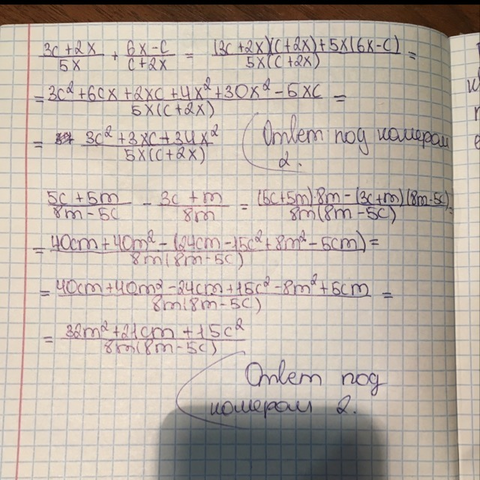 (3c+2x)/(5x) + (6x-c)/(c+2x) = ((3c+2x)(c+2x)+5x(6x-c))/(5x(c+2x)) =
= (3c²+6cx+2xc+4x²+30x²-5xc)/(5x(c+2x)) =
= (3c²+3xc+34x²)/(5x(c+2x)) (Ответ под номером
2.
(5c+5m)/(8m-5c) - (3c+m)/(8m) = ((5c+5m)·8m-(3c+m)(8m-5c))/(8m(8m-5c)) =
= (40cm+40m²-(24cm-15c²+8m²-5cm))/(8m(8m-5c)) =
= (40cm+40m²-24cm+15c²-8m²+5cm)/(8m(8m-5c)) =
= (32m²+21cm+15c²)/(8m(8m-5c))
(Ответ под
номером 2.